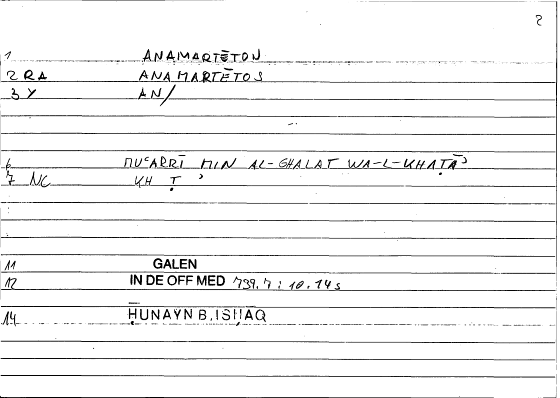 2
1 ANAMARTĒTON
2 RA ANAMARTĒTOS
3 Y AN/
6 MUʿARRĪ MIN AL-GHALAT WA-L-KHAṬĀʾ
7 NC KH Ṭ ʾ
11 GALEN
12 IN DE OFF MED 739.7 : 10.14s
14 ḤUNAYN B. ISḤAQ